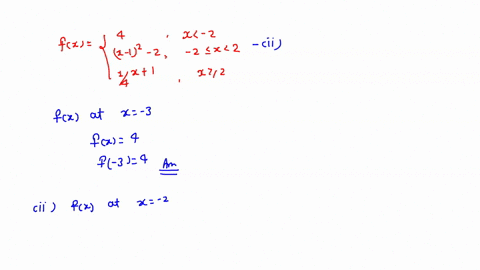 f(x) = { 4 , x < -2
(x-1)² - 2 , -2 ≤ x < 2 - (ii)
1/4 x + 1 , x ≥ 2
f(x) at x = -3
f(x) = 4
f(-3) = 4 Ans
(ii) f(x) at x = -2